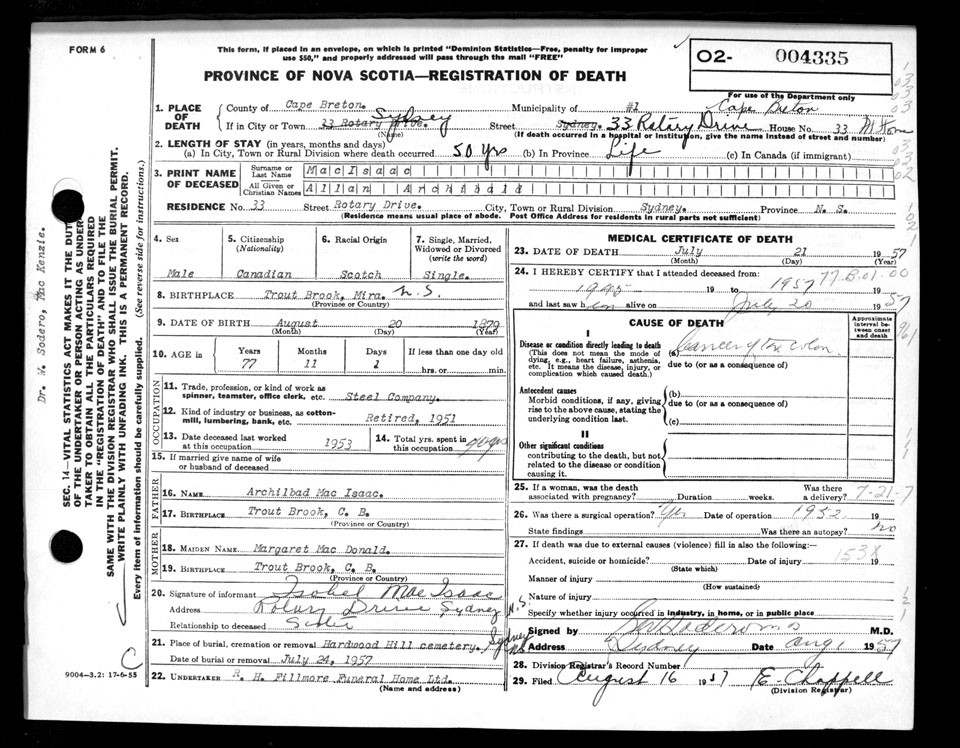 FORM 6
This form, if placed in an envelope, on which is printed "Dominion Statistics—Free, penalty for improper
use $50," and properly addressed will pass through the mail "FREE"
O2- 004335
PROVINCE OF NOVA SCOTIA—REGISTRATION OF DEATH
For use of the Department only
1. PLACE OF DEATH
County of Cape Breton. Municipality of #1 Cape Breton
If in City or Town 33 Rotary Drive. Sydney Street Sydney. 33 Rotary Drive House No. 33 At Home
(Name) (If death occurred in a hospital or institution, give the name instead of street and number)
2. LENGTH OF STAY (in years, months and days)
(a) In City, Town or Rural Division where death occurred 50 yrs (b) In Province Life (c) In Canada (if immigrant)
3. PRINT NAME OF DECEASED
Surname or Last Name MacIsaac
All Given or Christian Names Allan Archibald
RESIDENCE No. 33 Street Rotary Drive. City, Town or Rural Division Sydney. Province N. S.
(Residence means usual place of abode. Post Office Address for residents in rural parts not sufficient)
4. Sex
Male
5. Citizenship
(Nationality)
Canadian
6. Racial Origin
Scotch
7. Single, Married,
Widowed or Divorced
(write the word)
Single.
8. BIRTHPLACE Trout Brook, Mira. N.S.
(Province or Country)
9. DATE OF BIRTH August 20 1879
(Month) (Day) (Year)
10. AGE in Years Months Days If less than one day old
77 11 1 hrs. or min.
OCCUPATION
11. Trade, profession, or kind of work as
spinner, teamster, office clerk, etc. Steel Company.
12. Kind of industry or business, as cotton-
mill, lumbering, bank, etc. Retired, 1951
13. Date deceased last worked
at this occupation 1953
14. Total yrs. spent in
this occupation
15. If married give name of wife
or husband of deceased
FATHER
16. NAME Archilbad Mac Isaac.
17. BIRTHPLACE Trout Brook, C. B.
(Province or Country)
MOTHER
18. MAIDEN NAME Margaret Mac Donald.
19. BIRTHPLACE Trout Brook, C. B.
(Province or Country)
20. Signature of informant Isobel Mac Isaac
Address Rotary Drive Sydney N.S.
Relationship to deceased Sister
21. Place of burial, cremation or removal Hardwood Hill cemetery. Sydney NS
Date of burial or removal July 24, 1957
22. UNDERTAKER R. H. Fillmore Funeral Home Ltd.
(Name and address)
9004—3.2: 17-6-55
MEDICAL CERTIFICATE OF DEATH
23. DATE OF DEATH July 21 1957
(Month) (Day) (Year)
24. I HEREBY CERTIFY that I attended deceased from:
19 to 1957 19
77.B.01.00
and last saw h im alive on July 20 1957
CAUSE OF DEATH
Approximate
interval be-
tween onset
and death
I
Disease or condition directly leading to death
(This does not mean the mode of
dying, e.g., heart failure, asthenia,
etc. It means the disease, injury, or
complication which caused death.)
(a) Cancer of the colon
due to (or as a consequence of)
Antecedent causes
Morbid conditions, if any, giving
rise to the above cause, stating the
underlying condition last.
(b)
due to (or as a consequence of)
(c)
II
Other significant conditions
contributing to the death, but not
related to the disease or condition
causing it.
25. If a woman, was the death
associated with pregnancy? Duration weeks. Was there
a delivery?
7-21-7
26. Was there surgical operation? Yes Date of operation 1952
State findings Was there an autopsy? no
27. If death was due to external causes (violence) fill in also the following:—
153X
Accident, suicide or homicide? Date of injury 19
(State which)
Manner of injury
(How sustained)
Nature of injury
Specify whether injury occurred in industry, in home, or in public place
Signed by M.D.
Address Sydney Date Aug 1 1957
28. Division Registrar's Record Number
29. Filed August 16 1957 E. Chappell
(Division Registrar)
Dr. W. Sodero, Mac Kenzie.
SEC. 14—VITAL STATISTICS ACT MAKES IT THE DUTY
OF THE UNDERTAKER OR PERSON ACTING AS UNDER-
TAKER TO OBTAIN ALL THE PARTICULARS REQUIRED
IN THE "REGISTRATION OF DEATH" AND TO FILE THE
SAME WITH THE DIVISION REGISTRAR WHO SHALL ISSUE THE BURIAL PERMIT.
WRITE PLAINLY WITH UNFADING INK. THIS IS A PERMANENT RECORD.
Every item of information should be carefully supplied. (See reverse side for instructions.)
C